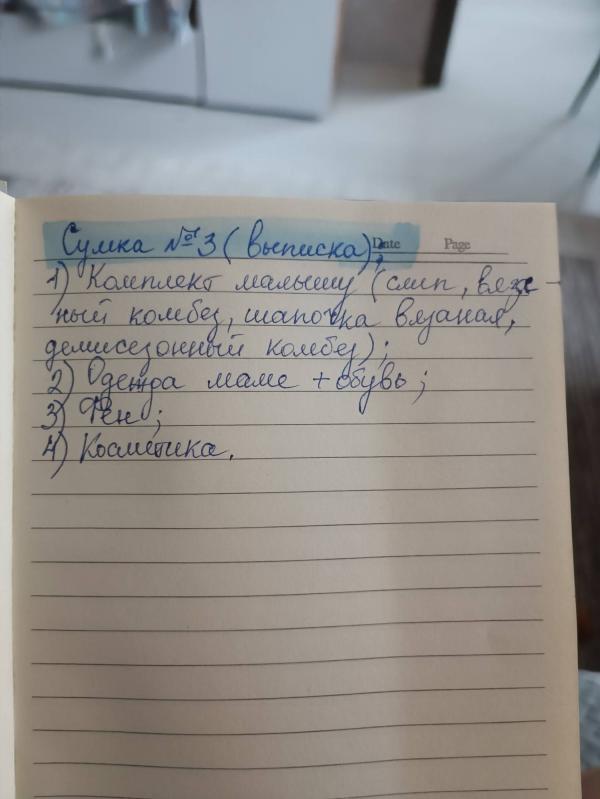 Сумка №3 (выписка):
Date Page
1) Комплект малышу (слип, вяза-
ный комбез, шапочка вязаная,
демисезонный комбез);
2) Одежда маме + обувь;
3) Фен;
4) Косметика.